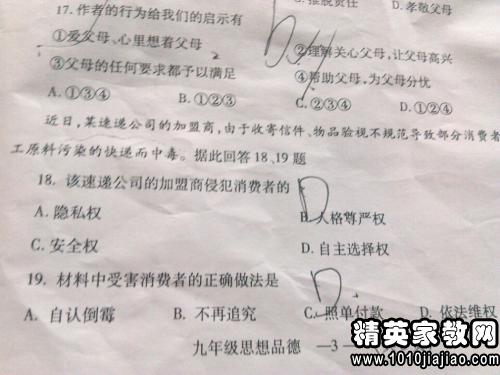 C. 推脱责任 D. 孝敬父母
17. 作者的行为给我们的启示有
①爱父母、心里想着父母 ②理解关心父母,让父母高兴
③父母的任何要求都予以满足 ④帮助父母,为父母分忧
A. ①③④ B. ①②③ C. ②③④ D. ①②④
近日,某速递公司的加盟商,由于收寄信件、物品验视不规范导致部分消费者
工原料污染的快递而中毒。据此回答18、19题
18. 该速递公司的加盟商侵犯消费者的 D
A. 隐私权 B. 人格尊严权
C. 安全权 D. 自主选择权
19. 材料中受害消费者的正确做法是 D
A. 自认倒霉 B. 不再追究 C. 照单付款 D. 依法维权
九年级思想品德 —3—
精英家教网
www.1010jiajiao.com